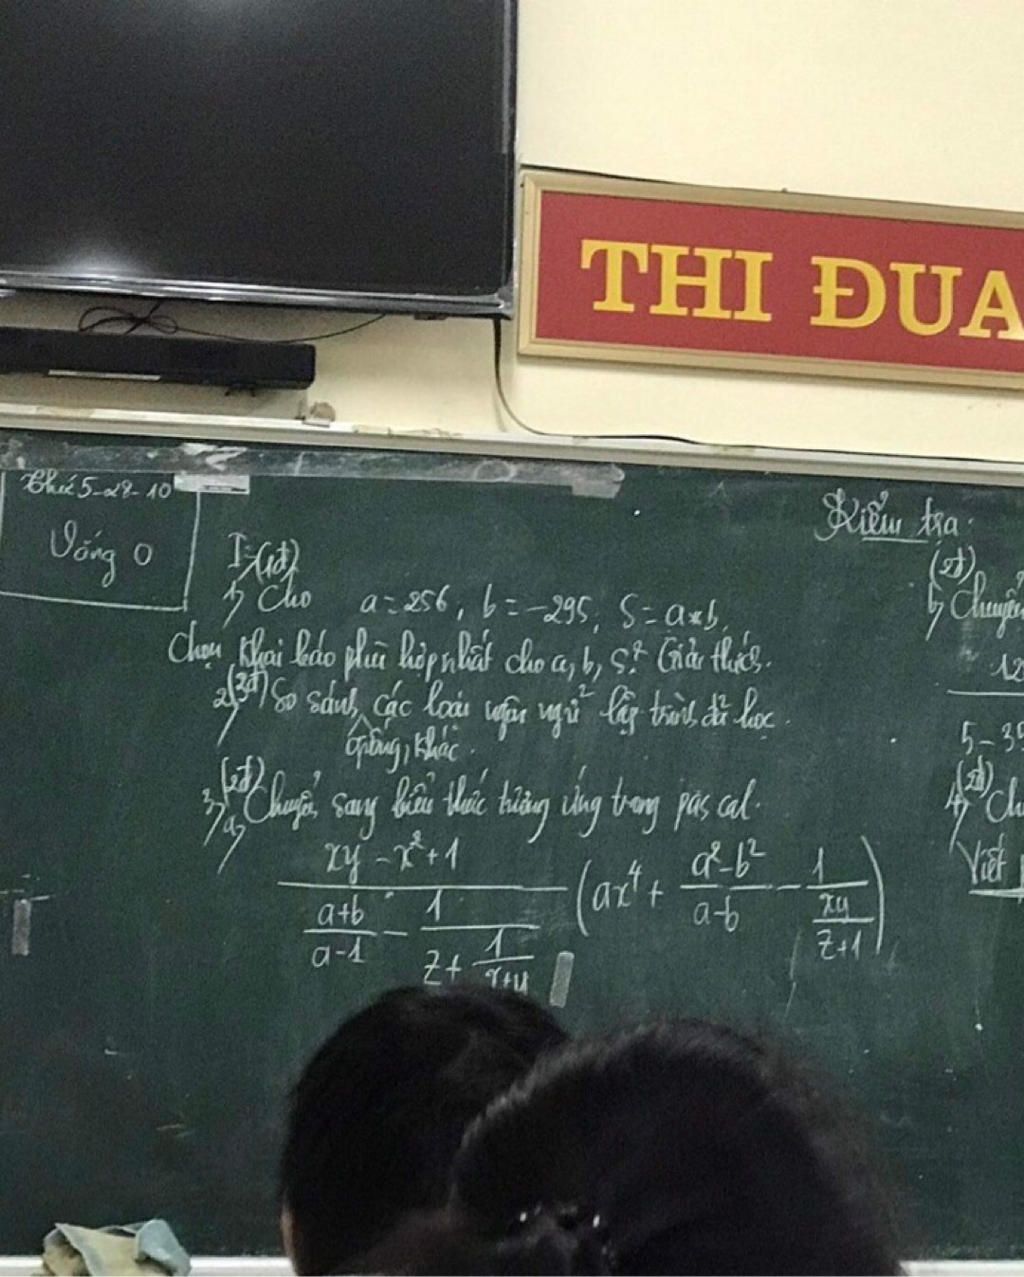 THI ĐUA
Thứ 5-28-10
Vắng 0
Kiểm tra
I-(1đ)
1, Cho a=256, b=-295, S=a*b
Chọn khai báo phù hợp nhất cho a, b, S? Giải thích.
2, (3đ) So sánh các loại ngôn ngữ lập trình đã học.
giống, khác.
(2đ)
3, a, Chuyển sang biểu thức tương ứng trong pascal.
xy - x² + 1
a+b
a-1
- 1
z + 1
x+y
(ax⁴ + a²-b²
a-b
- 1
xy
z+1)
(2đ)
b, Chuyển
12
5-35
(2đ)
4,
Viết